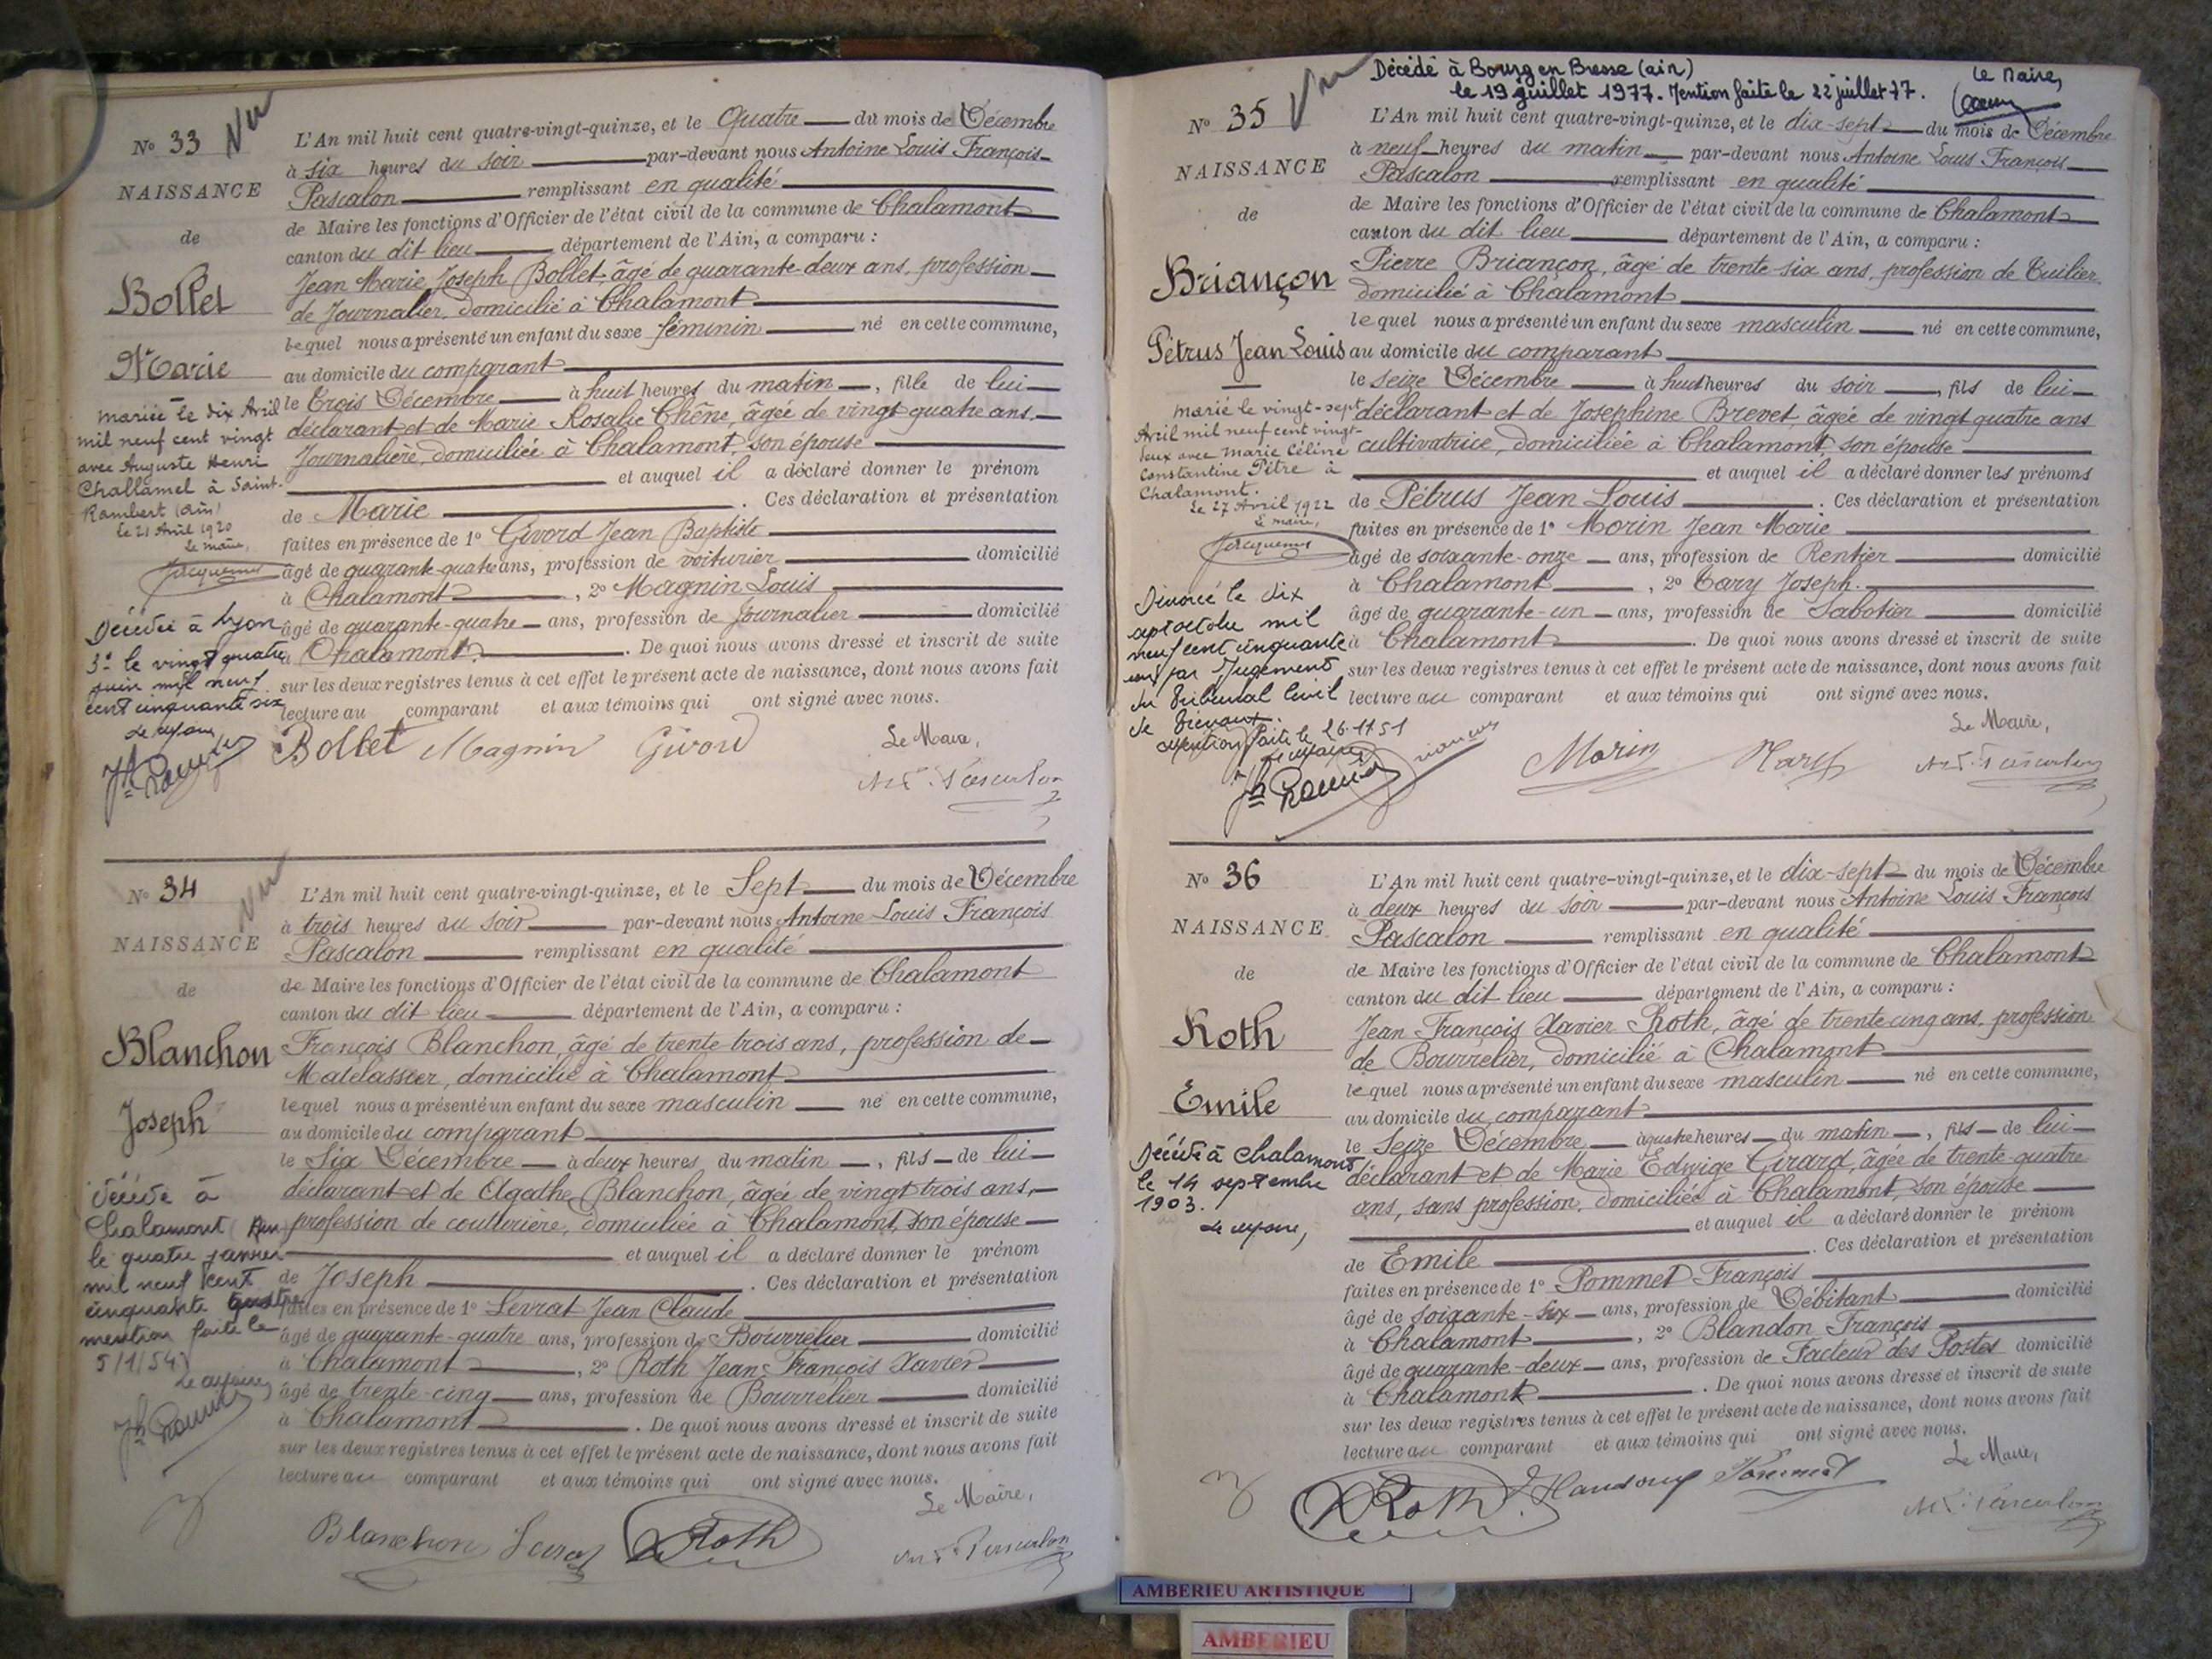 N° 33 Vu
NAISSANCE
de
Bollet
Marie
mariée le dix Avril
mil neuf cent vingt
avec Auguste Henri
Challamel à Saint-
Rambert (ain)
le 21 Avril 1920
Le maire,
Décédée à Lyon
3e le vingt quatre
juin mil neuf
cent cinquante six
L'An mil huit cent quatre-vingt-quinze, et le Quatre du mois de Décembre
à six heures du soir par-devant nous Antoine Louis François
Pascalon remplissant en qualité
de Maire les fonctions d'Officier de l'état civil de la commune de Chalamont
canton du dit lieu département de l'Ain, a comparu :
Jean Marie Joseph Bollet, âgé de quarante-deux ans, profession
de Journalier, domicilié à Chalamont
lequel nous a présenté un enfant du sexe féminin né en cette commune,
au domicile du comparant
le Trois Décembre à huit heures du matin, fille de lui
déclarant et de Marie Rosalie Chêne, âgée de vingt quatre ans
Journalière, domiciliée à Chalamont, son épouse
et auquel il a déclaré donner le prénom
de Marie. Ces déclaration et présentation
faites en présence de 1° Givord Jean Baptiste
âgé de quarante-quatre ans, profession de voiturier domicilié
à Chalamont, 2° Magnin Louis
âgé de quarante-quatre ans, profession de Journalier domicilié
à Chalamont. De quoi nous avons dressé et inscrit de suite
sur les deux registres tenus à cet effet le présent acte de naissance, dont nous avons fait
lecture au comparant et aux témoins qui ont signé avec nous.
Bollet Magnin Givord Le Maire,
N° 34 Vu
NAISSANCE
de
Blanchon
Joseph
Décédé à
Chalamont (Ain)
le quatre janvier
mil neuf cent
cinquante quatre
mention faite le
5/1/54
L'An mil huit cent quatre-vingt-quinze, et le Sept du mois de Décembre
à trois heures du soir par-devant nous Antoine Louis François
Pascalon remplissant en qualité
de Maire les fonctions d'Officier de l'état civil de la commune de Chalamont
canton du dit lieu département de l'Ain, a comparu :
François Blanchon, âgé de trente-trois ans, profession de
Matelassier, domicilié à Chalamont
lequel nous a présenté un enfant du sexe masculin né en cette commune,
au domicile du comparant
le Six Décembre à deux heures du matin, fils de lui
déclarant et de Agathe Blanchon, âgée de vingt trois ans,
profession de couturière, domiciliée à Chalamont, son épouse
et auquel il a déclaré donner le prénom
de Joseph. Ces déclaration et présentation
faites en présence de 1° Levrat Jean Claude
âgé de quarante-quatre ans, profession de Bourrelier domicilié
à Chalamont, 2° Roth Jean-François Xavier
âgé de trente-cinq ans, profession de Bourrelier domicilié
à Chalamont. De quoi nous avons dressé et inscrit de suite
sur les deux registres tenus à cet effet le présent acte de naissance, dont nous avons fait
lecture au comparant et aux témoins qui ont signé avec nous.
Le Maire,
Blanchon Levrat Roth
Décédé à Bourg en Bresse (ain) Le Maire,
le 19 juillet 1977. Mention faite le 22 juillet 77.
N° 35 Vu
NAISSANCE
de
Briançon
Pétrus Jean Louis
marié le vingt-sept
Avril mil neuf cent vingt-
deux avec Marie Céline
Constantine Pitre à
Chalamont.
Le 27 Avril 1922
Le maire,
Divorcé le dix
sept octobre mil
neuf cent cinquante
un par Jugement
du Tribunal Civil
de Trévoux.
Mention faite le 26.11.51
L'An mil huit cent quatre-vingt-quinze, et le dix-sept du mois de Décembre
à neuf heures du matin par-devant nous Antoine Louis François
Pascalon remplissant en qualité
de Maire les fonctions d'Officier de l'état civil de la commune de Chalamont
canton du dit lieu département de l'Ain, a comparu :
Pierre Briançon, âgé de trente-six ans, profession de Tuilier
domicilié à Chalamont
lequel nous a présenté un enfant du sexe masculin né en cette commune,
au domicile du comparant
le seize Décembre à huit heures du soir, fils de lui
déclarant et de Josephine Brevet, âgée de vingt quatre ans
cultivatrice, domiciliée à Chalamont, son épouse
et auquel il a déclaré donner les prénoms
de Pétrus Jean Louis. Ces déclaration et présentation
faites en présence de 1° Morin Jean Marie
âgé de soixante-onze ans, profession de Rentier domicilié
à Chalamont, 2° Joseph.
âgé de quarante-un ans, profession de Sabotier domicilié
à Chalamont. De quoi nous avons dressé et inscrit de suite
sur les deux registres tenus à cet effet le présent acte de naissance, dont nous avons fait
lecture au comparant et aux témoins qui ont signé avec nous.
Le Maire,
Morin
N° 36
NAISSANCE
de
Roth
Emile
Décédé à Chalamont
le 14 septembre
1903.
L'An mil huit cent quatre-vingt-quinze, et le dix-sept du mois de Décembre
à deux heures du soir par-devant nous Antoine Louis François
Pascalon remplissant en qualité
de Maire les fonctions d'Officier de l'état civil de la commune de Chalamont
canton du dit lieu département de l'Ain, a comparu :
Jean François Xavier Roth, âgé de trente-cinq ans, profession
de Bourrelier, domicilié à Chalamont
lequel nous a présenté un enfant du sexe masculin né en cette commune,
au domicile du comparant
le Seize Décembre à quatre heures du matin, fils de lui
déclarant et de Marie Edwige Girard, âgée de trente-quatre
ans, sans profession, domiciliée à Chalamont, son épouse
et auquel il a déclaré donner le prénom
de Emile. Ces déclaration et présentation
faites en présence de 1° Pommet François
âgé de soixante-six ans, profession de Débitant domicilié
à Chalamont, 2° Blandon François
âgé de quarante-deux ans, profession de Facteur des Postes domicilié
à Chalamont. De quoi nous avons dressé et inscrit de suite
sur les deux registres tenus à cet effet le présent acte de naissance, dont nous avons fait
lecture au comparant et aux témoins qui ont signé avec nous.
Le Maire,
Roth
AMBERIEU ARTISTIQUE
AMBERIEU